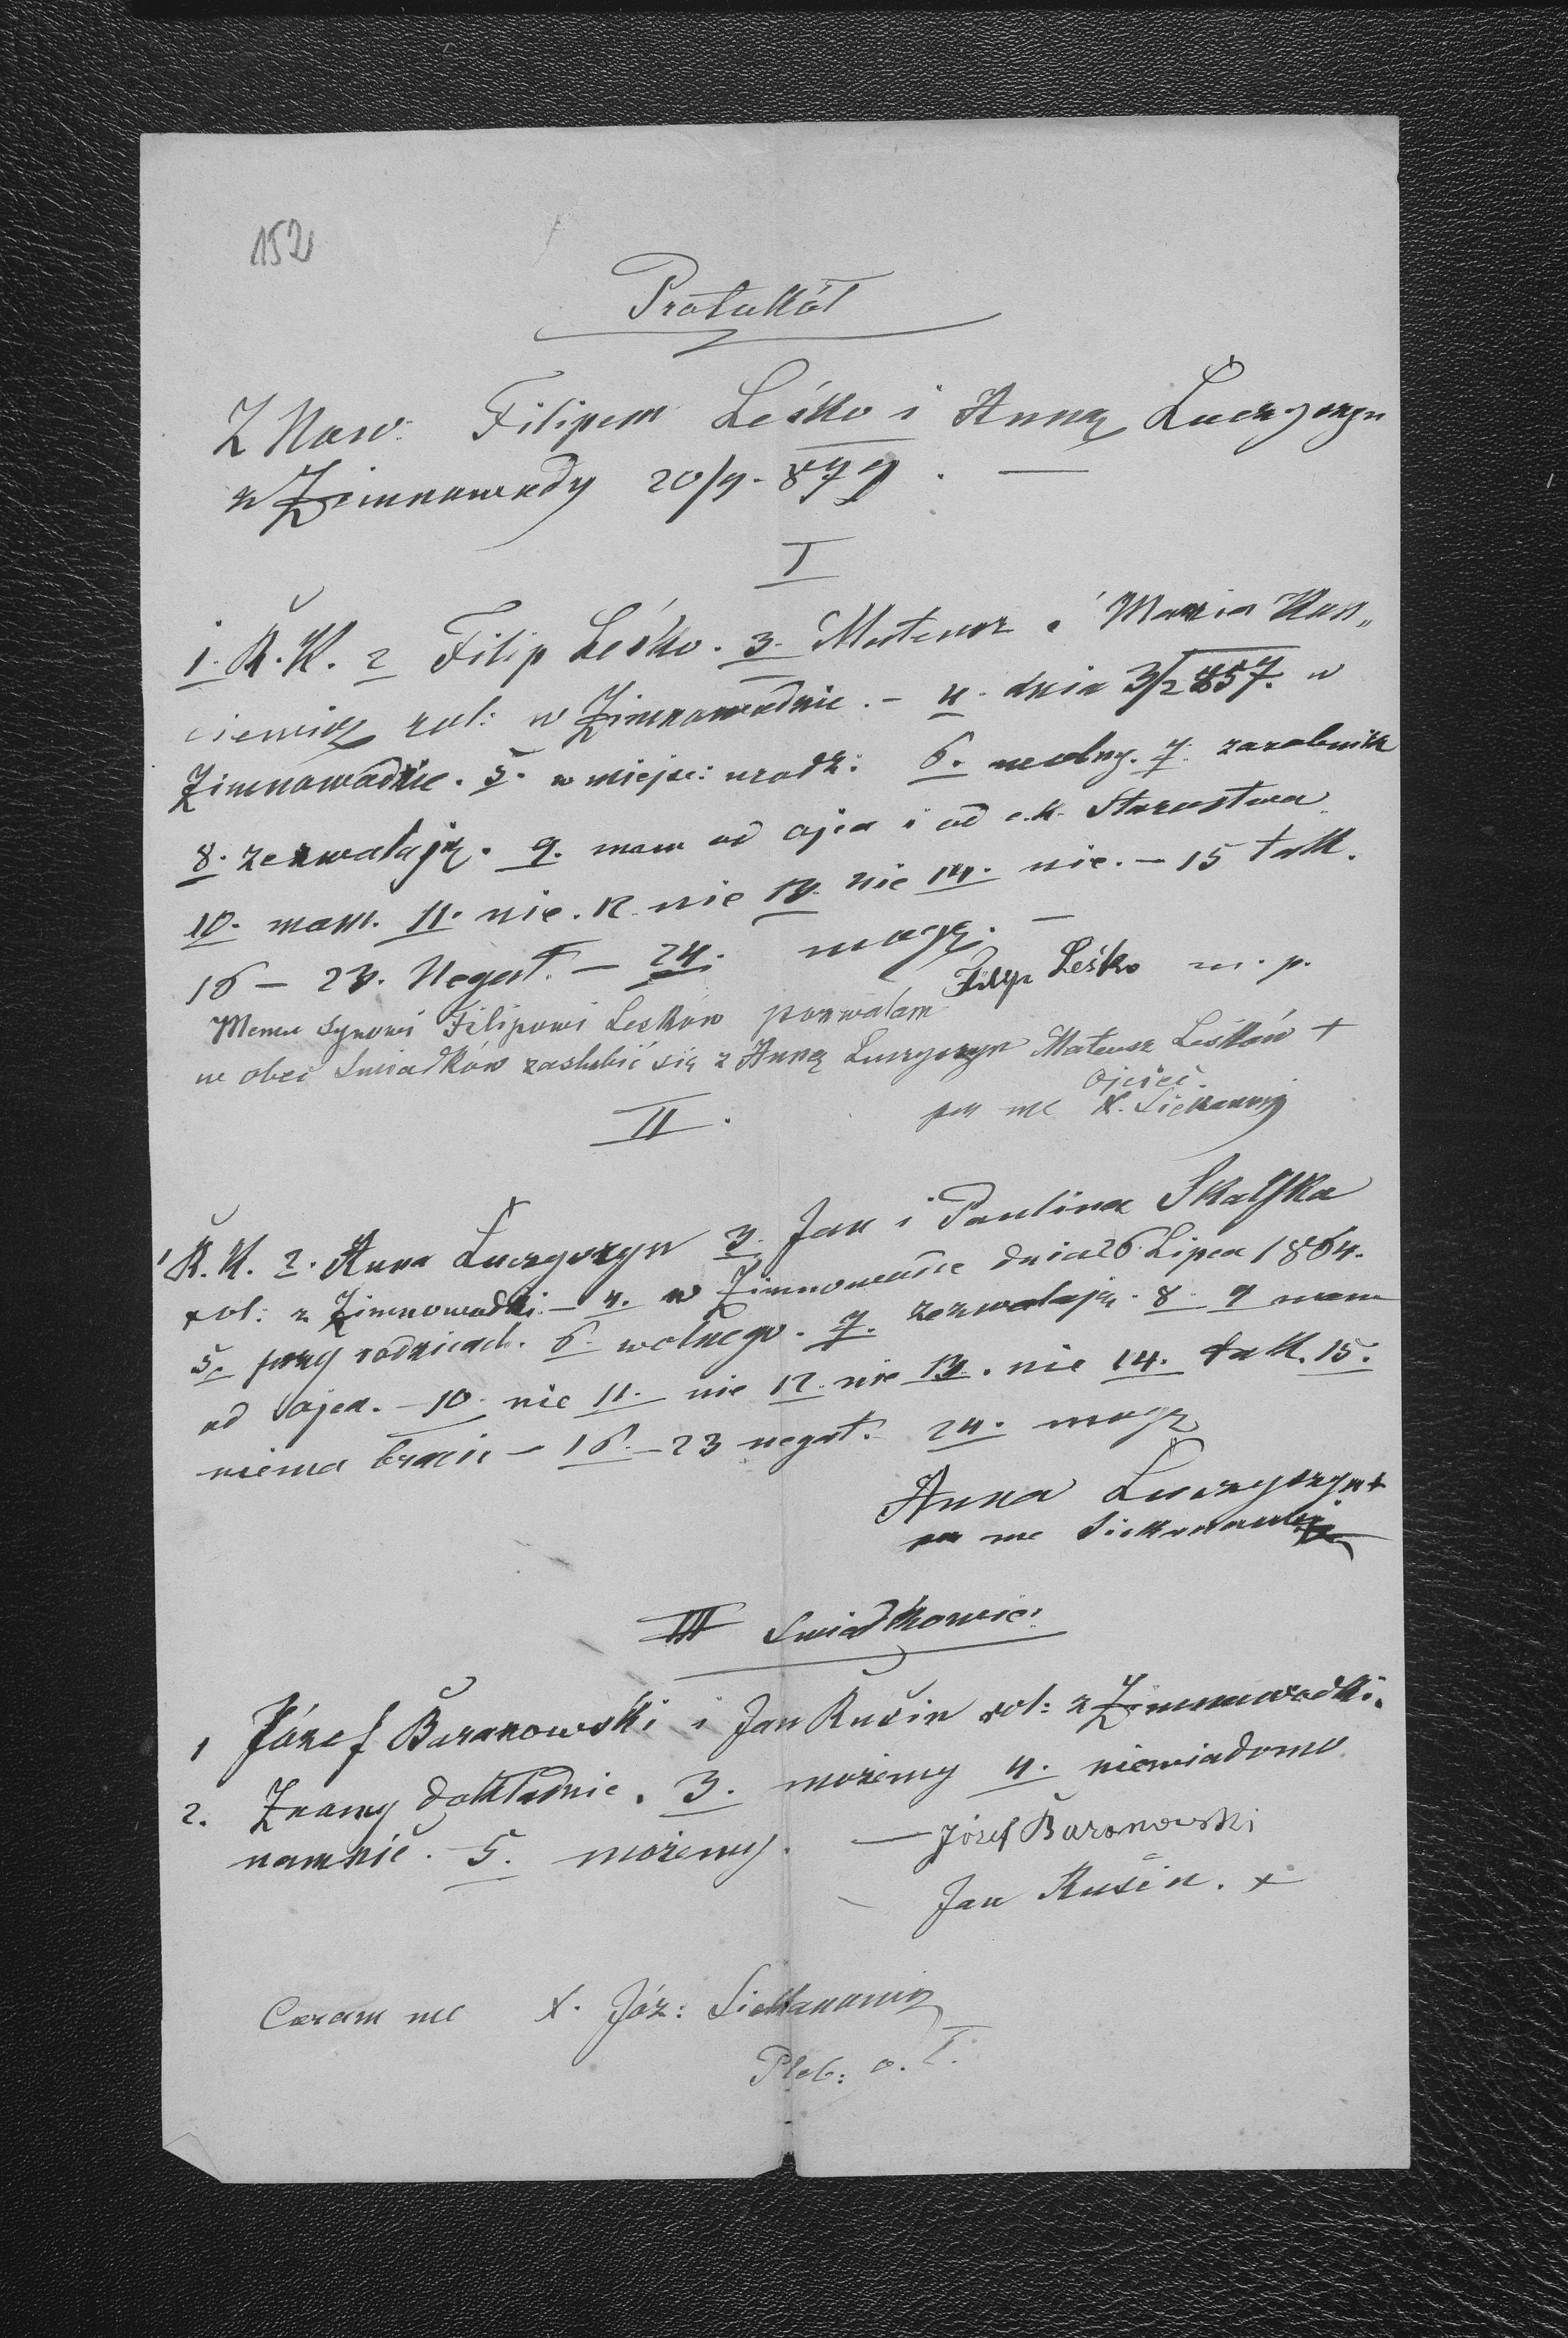 152
Protokół
Z Narz: Filipem Leśko i Anną Łuczyszyn
z Zimnowody 20/9. 879. —
I
1. R. K. 2 Filip Leśko. 3. Mateusz i Maria Kun„
ciewicz rol: w Zimnowodzie. – 4. dnia 3/2 857. w
Zimnowodzie. 5. w miejsc: urodz: 6. wolny. 7. zarobnik
8. zezwalają. 9. mam od ojca i od c.k. Starostwa
10. mam. 11. nie. 12. nie 13. nie 14. nie. – 15 tak.
16 – 23. Negat. – 24. mogę. —
Filip Leśko m. p.
Memu synowi Filipowi Leśków pozwalam
w obec Świadków zaślubić się z Anną Łuczyszyn Mateusz Leśków +
Ojciec.
per me X.
II.
1 R. K. 2. Anna Łuczyszyn 3. Jan i Paulina Skalska
rol: z Zimnowodki – 4. w Zimnowodzie dnia 26 Lipca 1864.
5. przy rodzicach. 6. wolnego. 7. zezwalają. 8. 9 mam
od ojca. – 10. nie 11. nie 12. nie 13. nie 14. tak. 15.
niema braci – 16. – 23 negat. 24. mogę
Anna Łuczyszyn +
per me
III Świadkowie:
1 Józef Baranowski i Jan Rusin rol: z Zimnowodki.
2. Znamy dokładnie. 3. możemy 4. niewiadomo
nam nic. 5. możemy. — Józef Baranowski
Jan Rusin. +
Coram me X. Józ:
Pleb: o. ł.